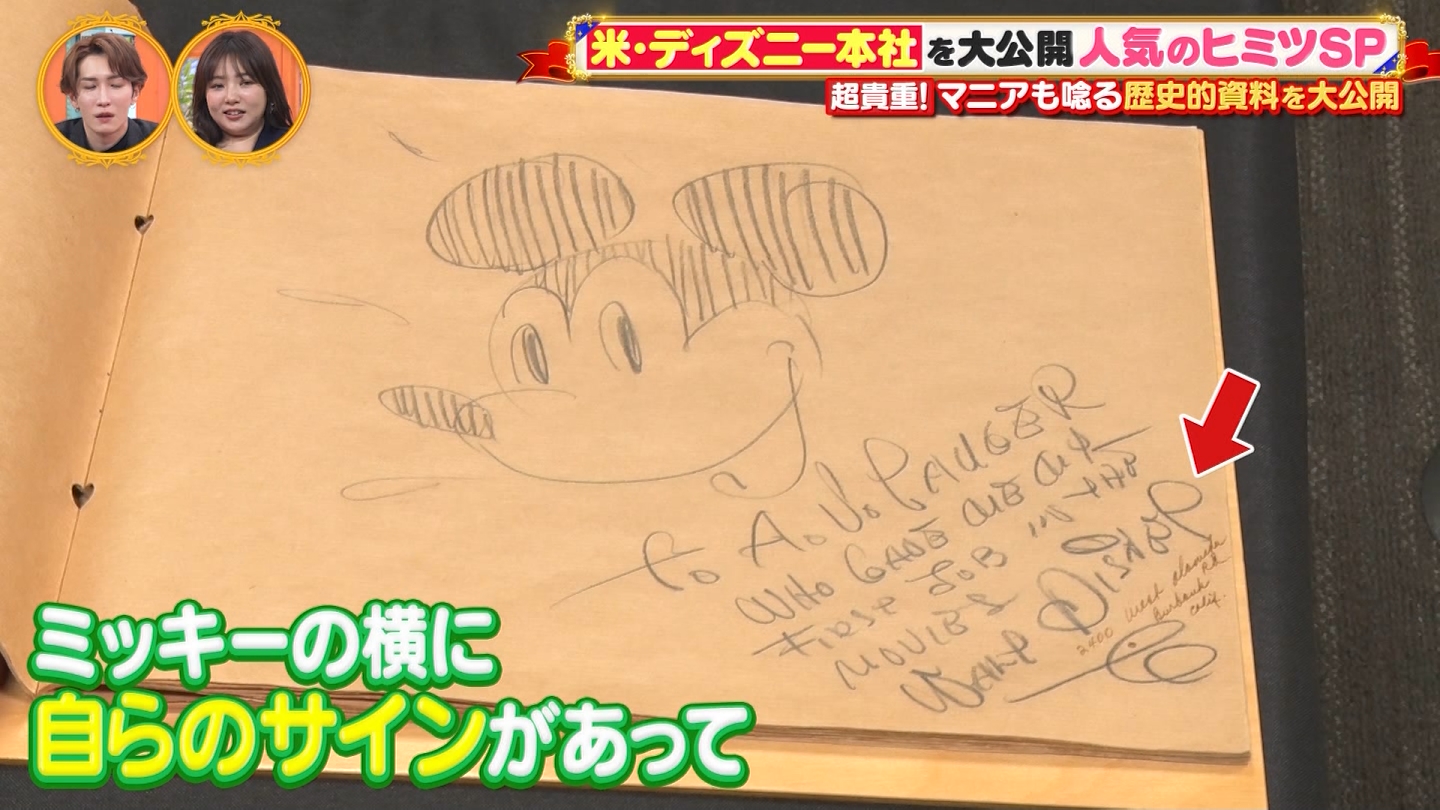 米・ディズニー本社を大公開 人気のヒミツSP
超貴重! マニアも唸る歴史的資料を大公開
To A.V. CAUGER
WHO GAVE ME MY
FIRST JOB IN THE
MOVIES
WALT DISNEY
2400 West Alameda
Rd.
Burbank
Calif.
ミッキーの横に
自らのサインがあって